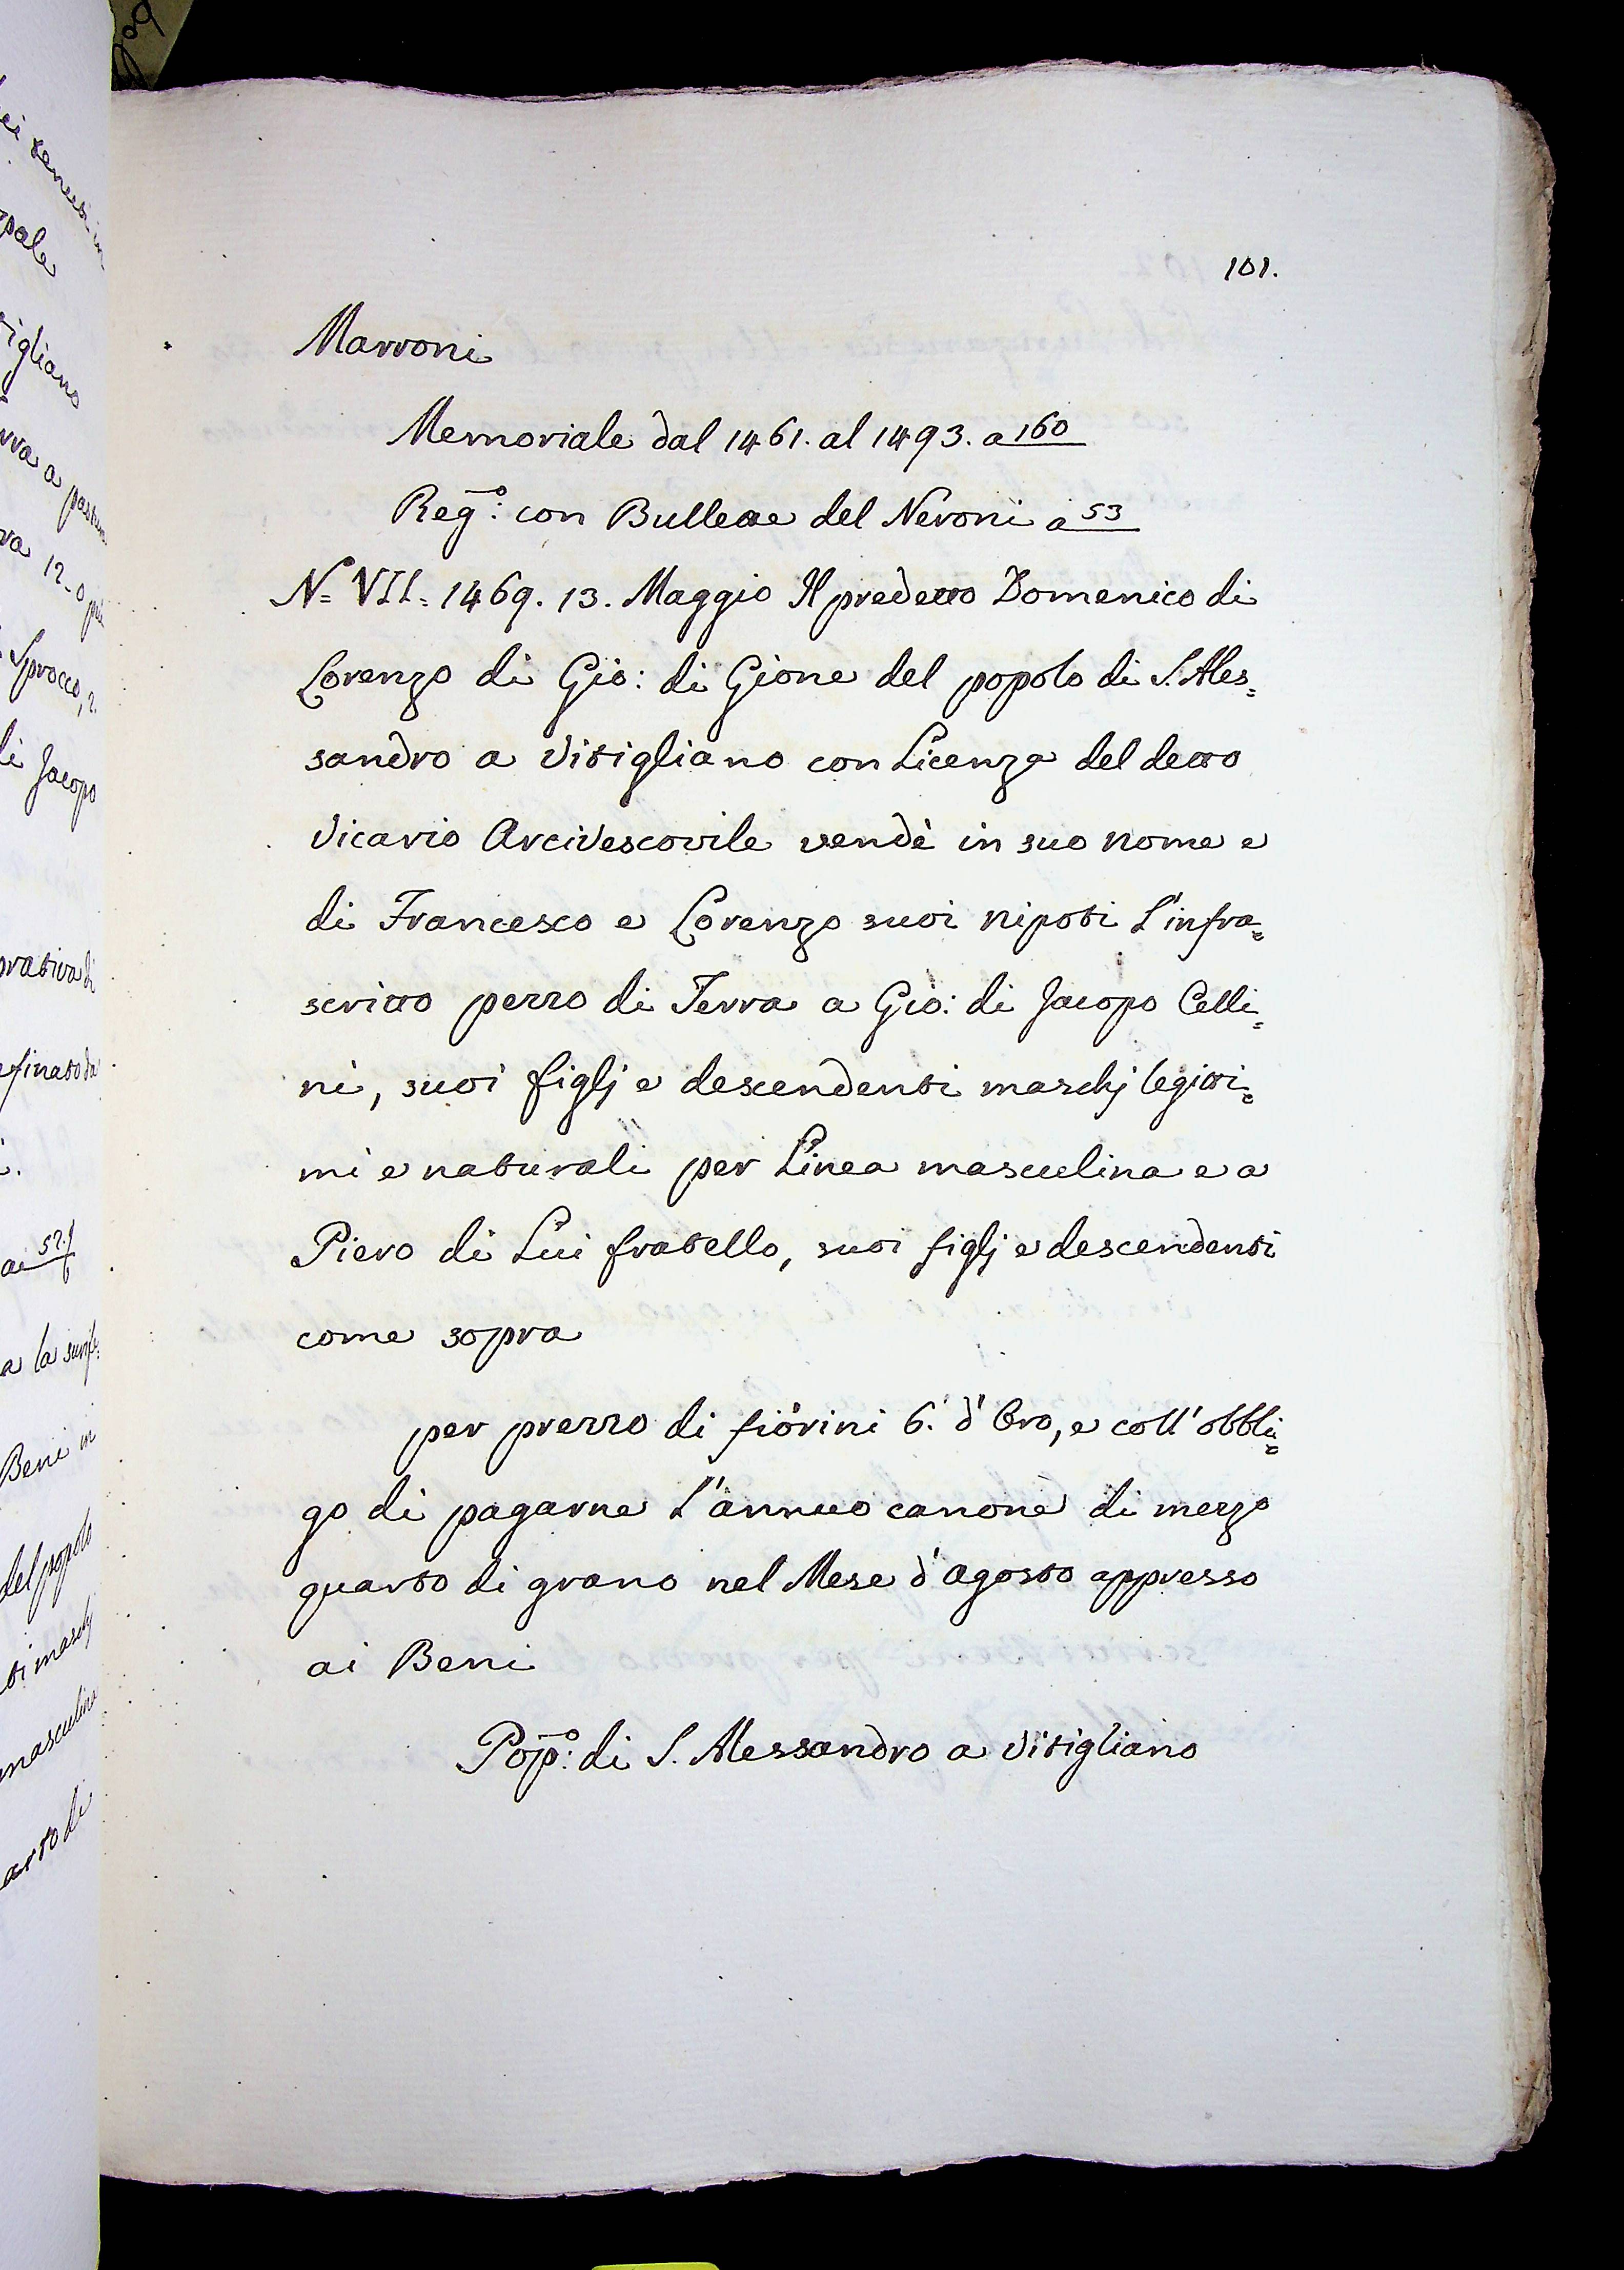 101.
Marroni
Memoriale dal 1461. al 1493. a 160
Reg.o: con Bullette del Neroni a 53
N= VII. 1469. 13. Maggio Il predetto Domenico di
Lorenzo di Gio: di Gione del popolo di S. Ales=
sandro a Vitigliano con Licenza del detto
Vicario Arcivescovile vendè in suo nome e
di Francesco e Lorenzo suoi nipoti l'infra=
scritto pezzo di Terra a Gio: di Jacopo Celli=
ni, suoi figlj e descendenti maschj legitti=
mi e naturali per Linea masculina e a
Piero di Lui fratello, suoi figlj e descendenti
come sopra
per prezzo di fiorini 6. d'Oro, e coll'obbli=
go di pagarne l'annuo canone di mezzo
quarto di grano nel Mese d'Agosto appresso
ai Beni
Pop.o: di S. Alessandro a Vitigliano